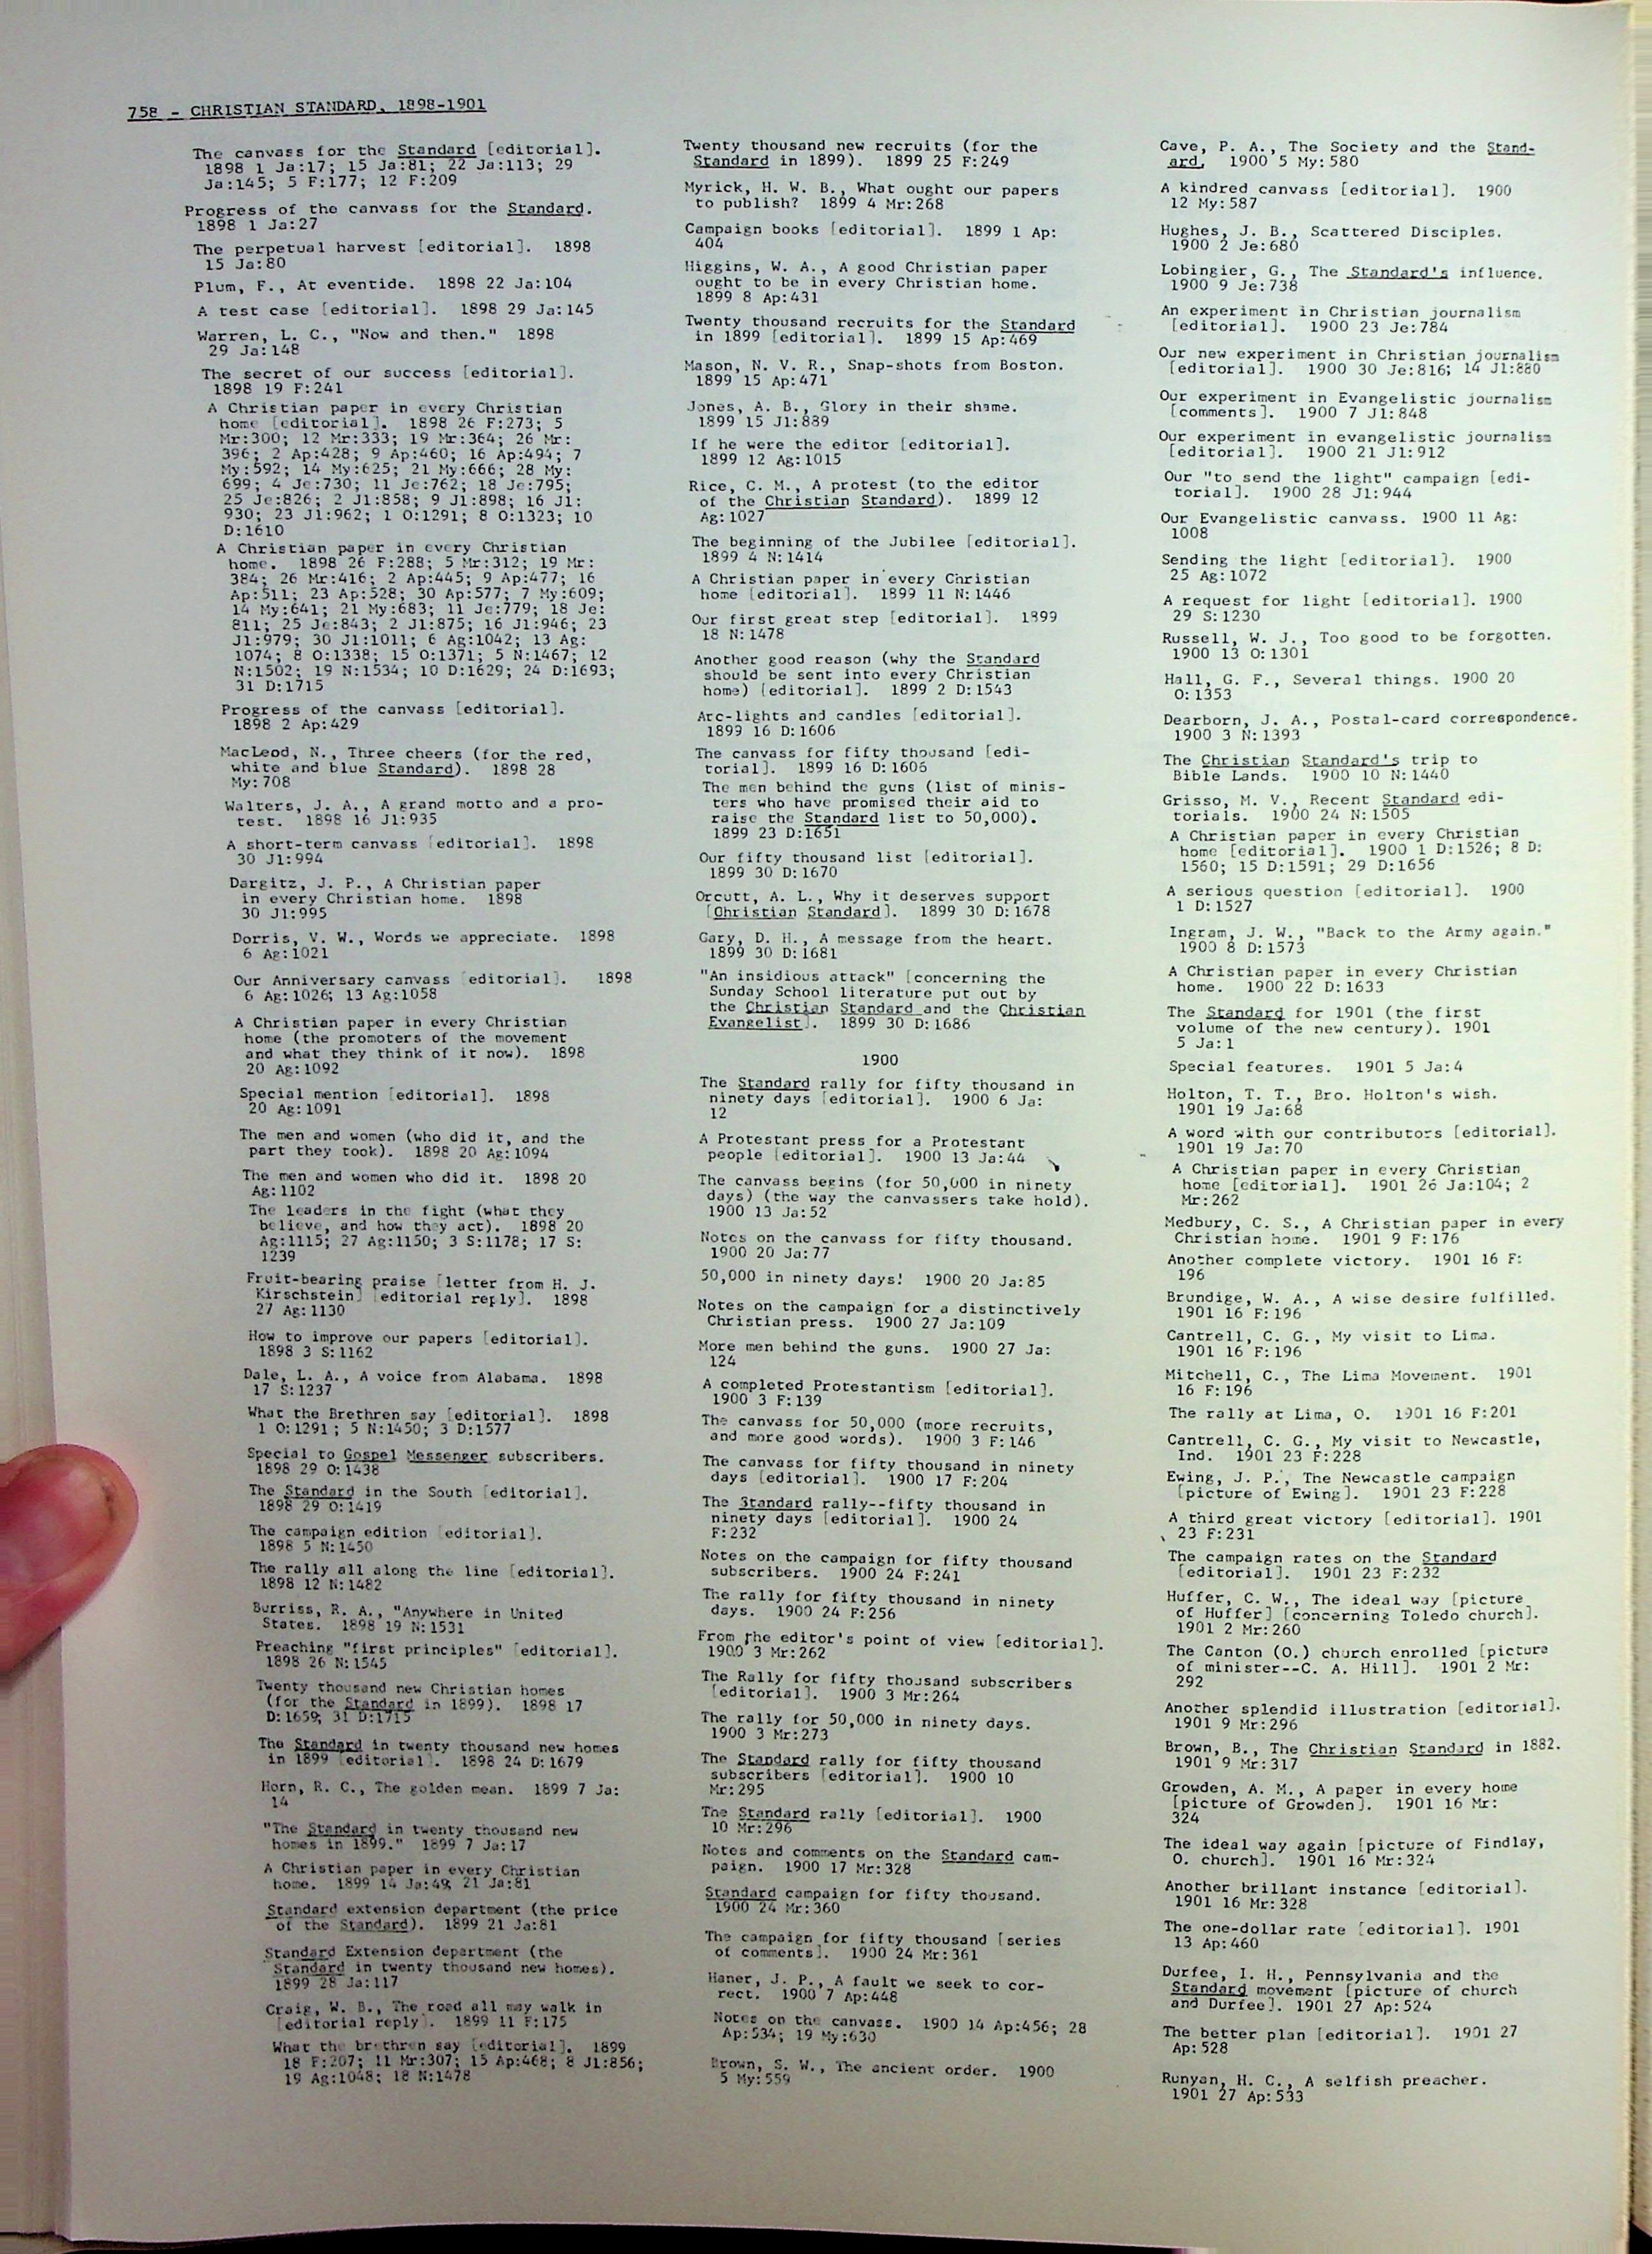 758 - CHRISTIAN STANDARD, 1898-1901
The canvass for the Standard [editorial].
1898 1 Ja:17; 15 Ja:81; 22 Ja:113; 29
Ja:145; 5 F:177; 12 F:209
Progress of the canvass for the Standard.
1898 1 Ja:27
The perpetual harvest [editorial]. 1898
15 Ja:80
Plum, F., At eventide. 1898 22 Ja:104
A test case [editorial]. 1898 29 Ja:145
Warren, L. C., "Now and then." 1898
29 Ja:148
The secret of our success [editorial].
1898 19 F:241
A Christian paper in every Christian
home [editorial]. 1898 26 F:273; 5
Mr:300; 12 Mr:333; 19 Mr:364; 26 Mr:
396; 2 Ap:428; 9 Ap:460; 16 Ap:494; 7
My:592; 14 My:625; 21 My:666; 28 My:
699; 4 Je:730; 11 Je:762; 18 Je:795;
25 Je:826; 2 Jl:858; 9 Jl:898; 16 Jl:
930; 23 Jl:962; 1 O:1291; 8 O:1323; 10
D:1610
A Christian paper in every Christian
home. 1898 26 F:288; 5 Mr:312; 19 Mr:
384; 26 Mr:416; 2 Ap:445; 9 Ap:477; 16
Ap:511; 23 Ap:528; 30 Ap:577; 7 My:609;
14 My:641; 21 My:683; 11 Je:779; 18 Je:
811; 25 Je:843; 2 Jl:875; 16 Jl:946; 23
Jl:979; 30 Jl:1011; 6 Ag:1042; 13 Ag:
1074; 8 O:1338; 15 O:1371; 5 N:1467; 12
N:1502; 19 N:1534; 10 D:1629; 24 D:1693;
31 D:1715
Progress of the canvass [editorial].
1898 2 Ap:429
MacLeod, N., Three cheers (for the red,
white and blue Standard). 1898 28
My:708
Walters, J. A., A grand motto and a pro-
test. 1898 16 Jl:935
A short-term canvass [editorial]. 1898
30 Jl:994
Dargitz, J. P., A Christian paper
in every Christian home. 1898
30 Jl:995
Dorris, V. W., Words we appreciate. 1898
6 Ag:1021
Our Anniversary canvass [editorial]. 1898
6 Ag:1026; 13 Ag:1058
A Christian paper in every Christian
home (the promoters of the movement
and what they think of it now). 1898
20 Ag:1092
Special mention [editorial]. 1898
20 Ag:1091
The men and women (who did it, and the
part they took). 1898 20 Ag:1094
The men and women who did it. 1898 20
Ag:1102
The leaders in the fight (what they
believe, and how they act). 1898 20
Ag:1115; 27 Ag:1150; 3 S:1178; 17 S:
1239
Fruit-bearing praise [letter from H. J.
Kirschstein] [editorial reply]. 1898
27 Ag:1130
How to improve our papers [editorial].
1898 3 S:1162
Dale, L. A., A voice from Alabama. 1898
17 S:1237
What the Brethren say [editorial]. 1898
1 O:1291; 5 N:1450; 3 D:1577
Special to Gospel Messenger subscribers.
1898 29 O:1438
The Standard in the South [editorial].
1898 29 O:1419
The campaign edition [editorial].
1898 5 N:1450
The rally all along the line [editorial].
1898 12 N:1482
Burriss, R. A., "Anywhere in United
States. 1898 19 N:1531
Preaching "first principles" [editorial].
1898 26 N:1545
Twenty thousand new Christian homes
(for the Standard in 1899). 1898 17
D:1659; 31 D:1715
The Standard in twenty thousand new homes
in 1899 [editorial]. 1898 24 D:1679
Horn, R. C., The golden mean. 1899 7 Ja:
14
"The Standard in twenty thousand new
homes in 1899." 1899 7 Ja:17
A Christian paper in every Christian
home. 1899 14 Ja:49; 21 Ja:81
Standard extension department (the price
of the Standard). 1899 21 Ja:81
Standard Extension department (the
Standard in twenty thousand new homes).
1899 28 Ja:117
Craig, W. B., The road all may walk in
[editorial reply]. 1899 11 F:175
What the brethren say [editorial]. 1899
18 F:207; 11 Mr:307; 15 Ap:468; 8 Jl:856;
19 Ag:1048; 18 N:1478
Twenty thousand new recruits (for the
Standard in 1899). 1899 25 F:249
Myrick, H. W. B., What ought our papers
to publish? 1899 4 Mr:268
Campaign books [editorial]. 1899 1 Ap:
404
Higgins, W. A., A good Christian paper
ought to be in every Christian home.
1899 8 Ap:431
Twenty thousand recruits for the Standard
in 1899 [editorial]. 1899 15 Ap:469
Mason, N. V. R., Snap-shots from Boston.
1899 15 Ap:471
Jones, A. B., Glory in their shame.
1899 15 Jl:889
If he were the editor [editorial].
1899 12 Ag:1015
Rice, C. M., A protest (to the editor
of the Christian Standard). 1899 12
Ag:1027
The beginning of the Jubilee [editorial].
1899 4 N:1414
A Christian paper in every Christian
home [editorial]. 1899 11 N:1446
Our first great step [editorial]. 1899
18 N:1478
Another good reason (why the Standard
should be sent into every Christian
home) [editorial]. 1899 2 D:1543
Arc-lights and candles [editorial].
1899 16 D:1606
The canvass for fifty thousand [edi-
torial]. 1899 16 D:1606
The men behind the guns (list of minis-
ters who have promised their aid to
raise the Standard list to 50,000).
1899 23 D:1651
Our fifty thousand list [editorial].
1899 30 D:1670
Orcutt, A. L., Why it deserves support
[Christian Standard]. 1899 30 D:1678
Gary, D. H., A message from the heart.
1899 30 D:1681
"An insidious attack" [concerning the
Sunday School literature put out by
the Christian Standard and the Christian
Evangelist]. 1899 30 D:1686
1900
The Standard rally for fifty thousand in
ninety days [editorial]. 1900 6 Ja:
12
A Protestant press for a Protestant
people [editorial]. 1900 13 Ja:44
The canvass begins (for 50,000 in ninety
days) (the way the canvassers take hold).
1900 13 Ja:52
Notes on the canvass for fifty thousand.
1900 20 Ja:77
50,000 in ninety days! 1900 20 Ja:85
Notes on the campaign for a distinctively
Christian press. 1900 27 Ja:109
More men behind the guns. 1900 27 Ja:
124
A completed Protestantism [editorial].
1900 3 F:139
The canvass for 50,000 (more recruits,
and more good words). 1900 3 F:146
The canvass for fifty thousand in ninety
days [editorial]. 1900 17 F:204
The Standard rally--fifty thousand in
ninety days [editorial]. 1900 24
F:232
Notes on the campaign for fifty thousand
subscribers. 1900 24 F:241
The rally for fifty thousand in ninety
days. 1900 24 F:256
From the editor's point of view [editorial].
1900 3 Mr:262
The Rally for fifty thousand subscribers
[editorial]. 1900 3 Mr:264
The rally for 50,000 in ninety days.
1900 3 Mr:273
The Standard rally for fifty thousand
subscribers [editorial]. 1900 10
Mr:295
The Standard rally [editorial]. 1900
10 Mr:296
Notes and comments on the Standard cam-
paign. 1900 17 Mr:328
Standard campaign for fifty thousand.
1900 24 Mr:360
The campaign for fifty thousand [series
of comments]. 1900 24 Mr:361
Haner, J. P., A fault we seek to cor-
rect. 1900 7 Ap:448
Notes on the canvass. 1900 14 Ap:456; 28
Ap:534; 19 My:630
Brown, S. W., The ancient order. 1900
5 My:559
Cave, P. A., The Society and the Stand-
ard. 1900 5 My:580
A kindred canvass [editorial]. 1900
12 My:587
Hughes, J. B., Scattered Disciples.
1900 2 Je:680
Lobingier, G., The Standard's influence.
1900 9 Je:738
An experiment in Christian journalism
[editorial]. 1900 23 Je:784
Our new experiment in Christian journalism
[editorial]. 1900 30 Je:816; 14 Jl:880
Our experiment in Evangelistic journalism
[comments]. 1900 7 Jl:848
Our experiment in evangelistic journalism
[editorial]. 1900 21 Jl:912
Our "to send the light" campaign [edi-
torial]. 1900 28 Jl:944
Our Evangelistic canvass. 1900 11 Ag:
1008
Sending the light [editorial]. 1900
25 Ag:1072
A request for light [editorial]. 1900
29 S:1230
Russell, W. J., Too good to be forgotten.
1900 13 O:1301
Hall, G. F., Several things. 1900 20
O:1353
Dearborn, J. A., Postal-card correspondence.
1900 3 N:1393
The Christian Standard's trip to
Bible Lands. 1900 10 N:1440
Grisso, M. V., Recent Standard edi-
torials. 1900 24 N:1505
A Christian paper in every Christian
home [editorial]. 1900 1 D:1526; 8 D:
1560; 15 D:1591; 29 D:1656
A serious question [editorial]. 1900
1 D:1527
Ingram, J. W., "Back to the Army again."
1900 8 D:1573
A Christian paper in every Christian
home. 1900 22 D:1633
The Standard for 1901 (the first
volume of the new century). 1901
5 Ja:1
Special features. 1901 5 Ja:4
Holton, T. T., Bro. Holton's wish.
1901 19 Ja:68
A word with our contributors [editorial].
1901 19 Ja:70
A Christian paper in every Christian
home [editorial]. 1901 26 Ja:104; 2
Mr:262
Medbury, C. S., A Christian paper in every
Christian home. 1901 9 F:176
Another complete victory. 1901 16 F:
196
Brundige, W. A., A wise desire fulfilled.
1901 16 F:196
Cantrell, C. G., My visit to Lima.
1901 16 F:196
Mitchell, C., The Lima Movement. 1901
16 F:196
The rally at Lima, O. 1901 16 F:201
Cantrell, C. G., My visit to Newcastle,
Ind. 1901 23 F:228
Ewing, J. P., The Newcastle campaign
[picture of Ewing]. 1901 23 F:228
A third great victory [editorial]. 1901
23 F:231
The campaign rates on the Standard
[editorial]. 1901 23 F:232
Huffer, C. W., The ideal way [picture
of Huffer] [concerning Toledo church].
1901 2 Mr:260
The Canton (O.) church enrolled [picture
of minister--C. A. Hill]. 1901 2 Mr:
292
Another splendid illustration [editorial].
1901 9 Mr:296
Brown, B., The Christian Standard in 1882.
1901 9 Mr:317
Growden, A. M., A paper in every home
[picture of Growden]. 1901 16 Mr:
324
The ideal way again [picture of Findlay,
O. church]. 1901 16 Mr:324
Another brillant instance [editorial].
1901 16 Mr:328
The one-dollar rate [editorial]. 1901
13 Ap:460
Durfee, I. H., Pennsylvania and the
Standard movement [picture of church
and Durfee]. 1901 27 Ap:524
The better plan [editorial]. 1901 27
Ap:528
Runyan, H. C., A selfish preacher.
1901 27 Ap:533